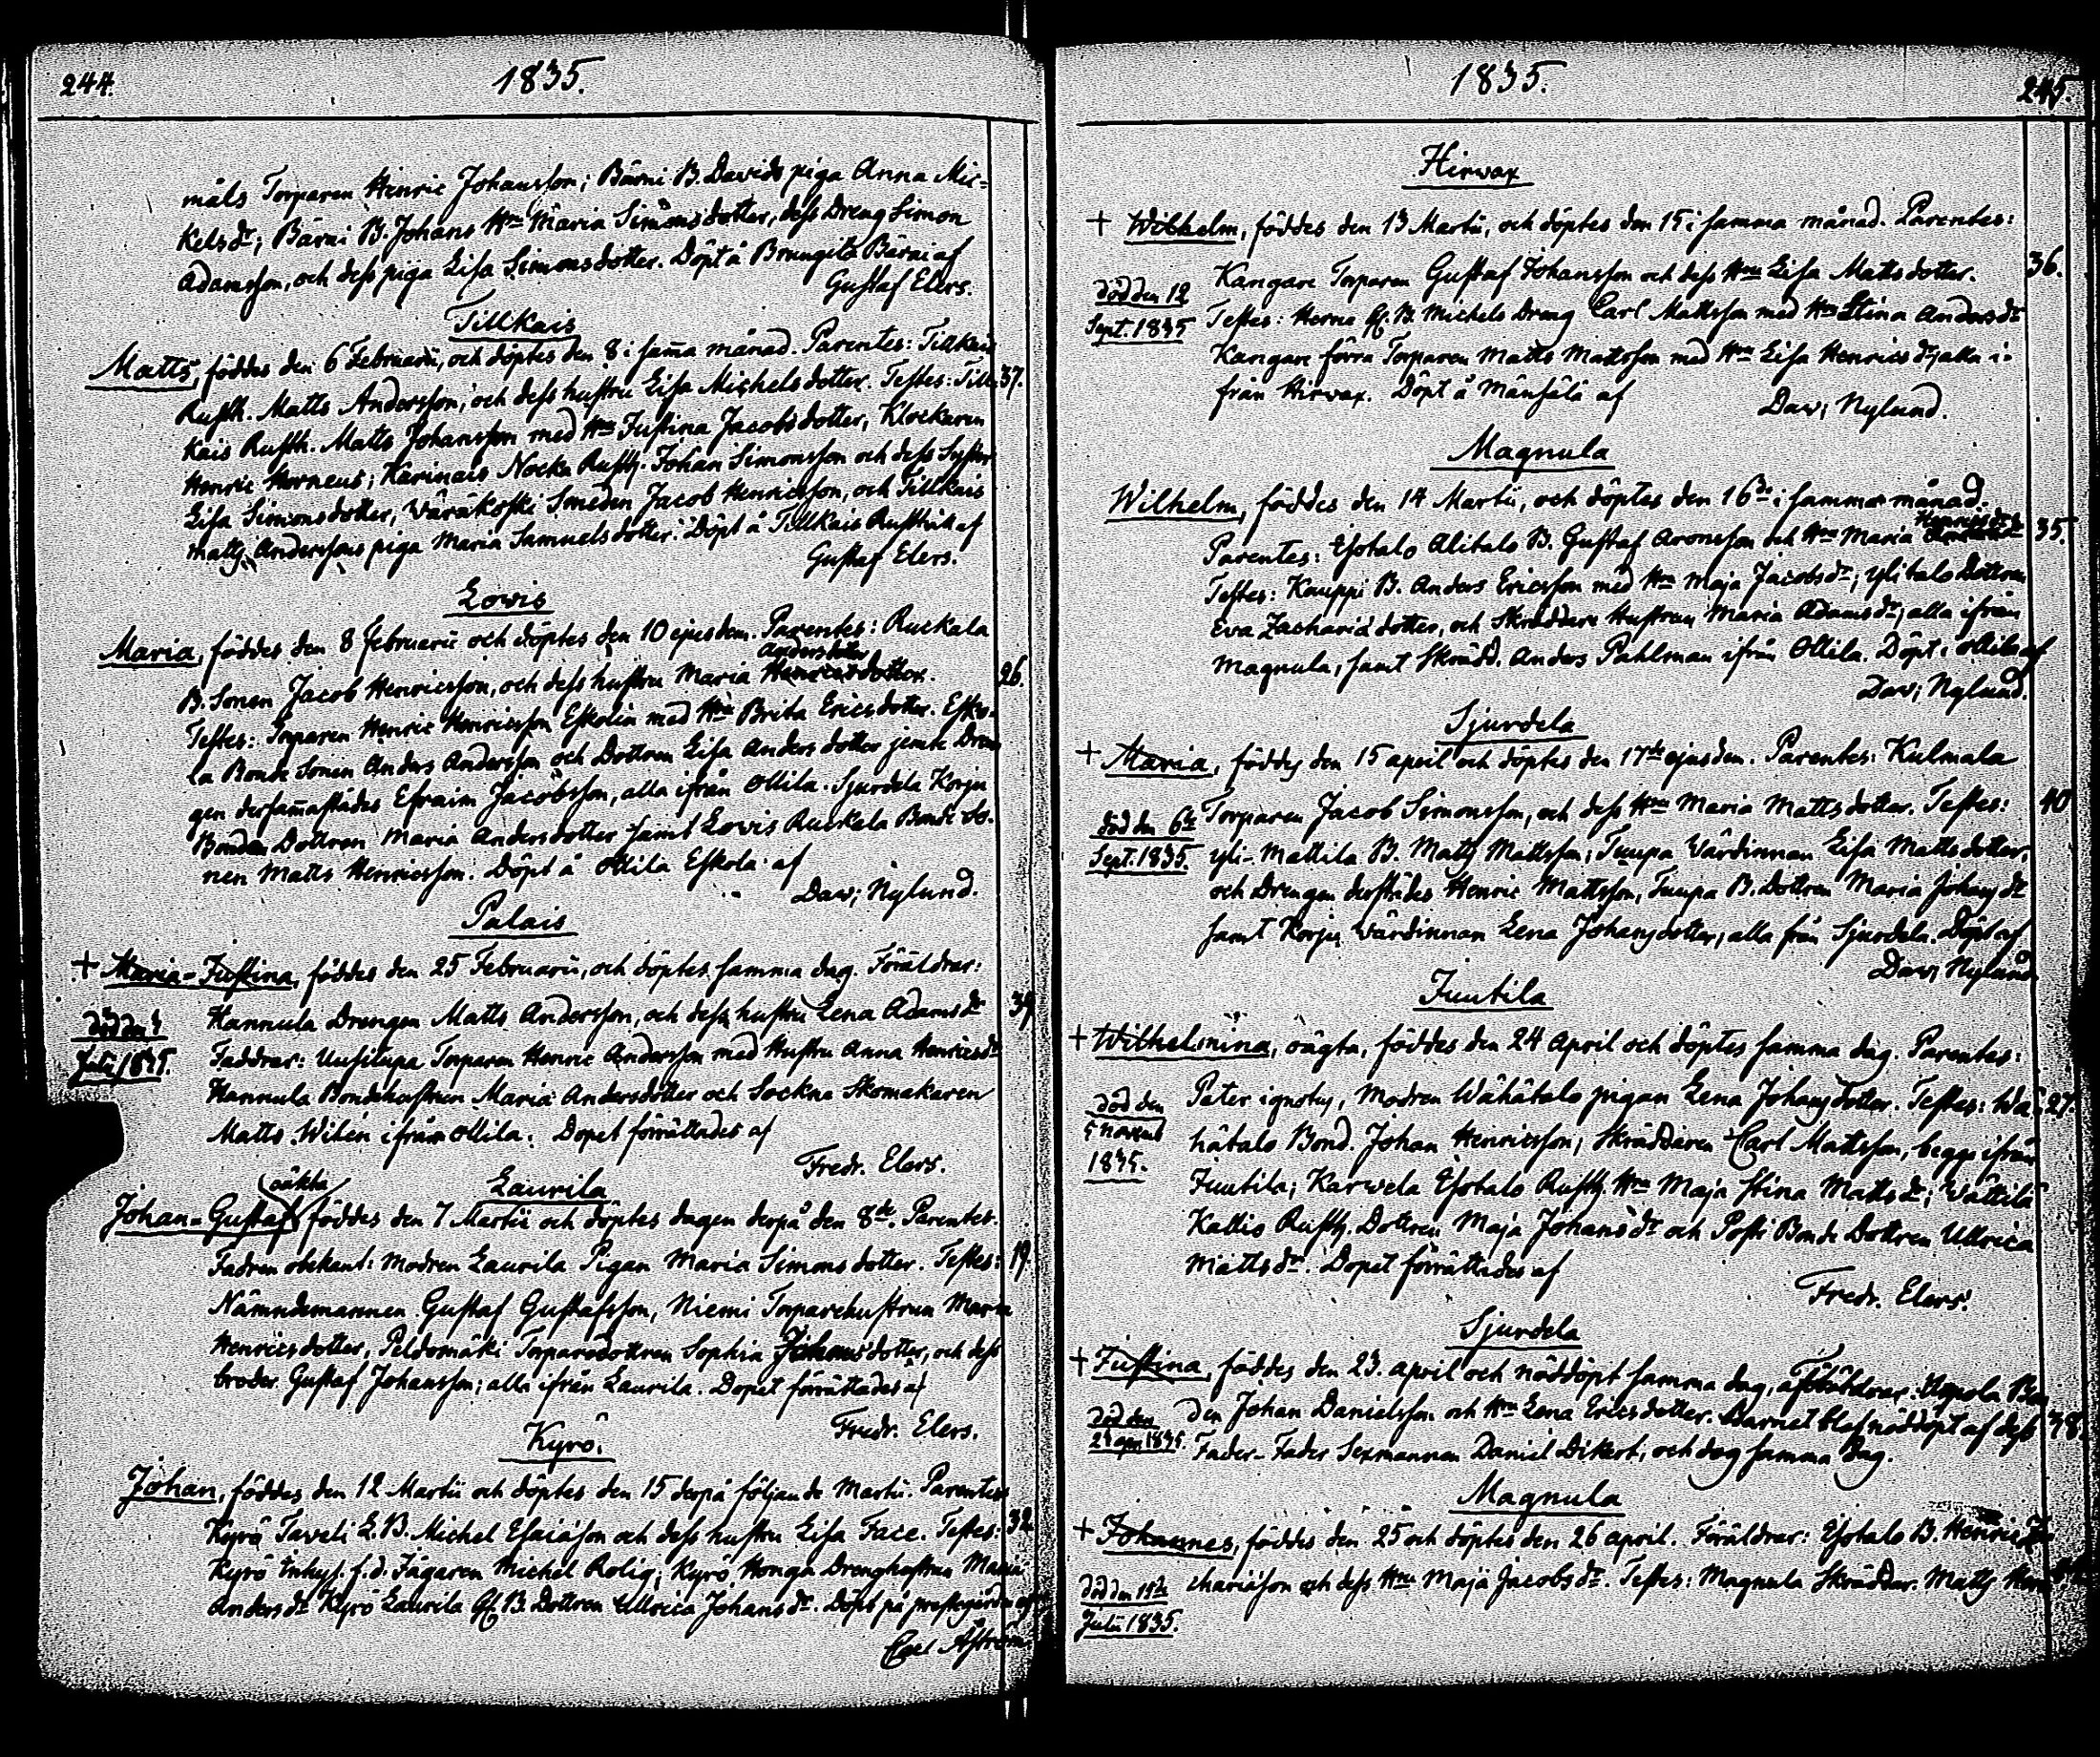 244.
1835.
måls Torparen Henric Johansson; Bärni B. Davids piga Anna Mic-
kelsdr; Bärni B. Johans Hru Maria Simonsdotter, dess Dreng Simon
Adamsson, och dess piga Lisa Simonsdotter. Döpt å Brungila Bärni af
Gustaf Elers.
Tillkais
Matts, föddes den 6 Februarii, och döptes den 8 i sama månad. Parentes: Tillkais
37.
Rusth. Matts Andersson, och dess hustru Lisa Michelsdotter. Testes: Till-
kais Rusth. Matts Johansson med Hru Justina Jacobsdotter, Klockaren
Henric Horneus; Karinais Nocka Rusth. Johan Simonsson och dess Syster
Lisa Simonsdotter, Wäräkoski Smeden Jacob Henricsson, och Tillkais
Matts Anderssons piga Maria Samuelsdotter. Döpt å Tillkais Rusthåll af
Gustaf Elers.
Lowis
Maria, föddes den 8 februarii och döptes den 10 ejusdem. Parentes: Ruckala
Andersdotter
B. Sonen Jacob Henricsson, och dess hustru Maria Henricsdotter.
26.
Testes: Torparen Henric Henricsson Eskolin med Hru Brita Ericsdotter. Esko-
la Bonde Sonen Anders Andersson och Dottren Lisa Anders dotter jemte Dren-
gen dersamastädes Efraim Jacobsson, alla ifrån Ollila. Sjurdela Korju
Bonden Dottren Maria Andersdotter samt Lowis Ruckala Bonde So-
nen Matts Henricsson. Döpt å Ollila Eskola af
Dav; Nylund.
Palais
+ Maria-Justina, föddes den 25 Februarii, och döptes samma dag. Föräldrar:
Hannula Drengen Matts Andersson, och dess hustru Lena Adamsdr
39
död den 4
Julii 1835.
Faddrar: Uusitupa Torparen Henric Andersson med Hustru Anna Henricsdr
Hannula Bondehustrun Maria Andersdotter och Sockne Skomakaren
Matts Wilén ifrån Ollila. Dopet förrättades af
Fredr. Elers.
Laurila
oäkta
Johan-Gustaf föddes den 7 Martii och döptes dagen derpå den 8de. Parentes.
Fadren obekant: modren Laurila Pigan Maria Simonsdotter. Testes:
19.
Nämndemannen Gustaf Gustafsson, Niemi Torparehustrun Maria
Henricsdotter, Peldomäki Torparedottren Sophia Johansdotter, och dess
broder Gustaf Johansson; alla ifrån Laurila. Dopet förrättades af
Fredr. Elers.
Kyrö.
Johan, föddes den 12 Martii och döptes den 15 derpå följande Martii. Parentes
Kyrö Taveli L.B. Michel Esaiäson och dess hustru Lisa Face. Testes:
32
Kyrö Inhys. f.d. Jägaren Michel Rolig; Kyrö Honga Drenghustrun Maria
Andersdr Kyrö Laurila B. Dottren Ullrica Johansdr. Döpt på prestgården af
Carl Åström.
1835.
245.
Hirwax
+ Wilhelm, föddes den 13 Martii, och döptes den 15 i samma månad. Parentes:
Kangare Torparen Gustaf Johansson och dess Hru Lisa Mattsdotter.
36.
död den 12
Sept. 1835
Testes: Herna B. Michels Dreng Carl Mattsson med Hru Stina Andersdr
Kangare förra Torparen Matts Mattsson med Hru Lisa Henricsdr, alla i-
från Hirwax. Döpt å Mänsälä af
Dav; Nylund.
Magnula
Wilhelm, föddes den 14 Martii, och döptes den 16de i samma månad.
Henricsdr
Parentes: Esotalo Alitalo B. Gustaf Aronsson och Hru Maria
35.
Testes: Kauppi B. Anders Ericsson med Hru Maja Jacobsdr; ylitalo Dottren
Eva Zacharia dotter, och Skräddare Hustrun Maria Adamsdr; alla ifrån
Magnula, samt Skrädd. Anders Pahlman ifrån Ollila. Döpt i Ollila af
Dav; Nylund.
Sjurdela
+ Maria, föddes den 15 april och döptes den 17de ejusdem. Parentes: Kulmala
Torparen Jacob Simonsson, och dess Hru Maria Mattsdotter. Testes:
40
död den 6te
Sept. 1835.
yli-Mattila B. Matts Mattsson; Tuupa Värdinnan Lisa Mattsdotter,
och Drengen derstädes Henric Mattsson, Tuupa B. Dottren Maria Johansdr
samt Korju Wärdinnan Lena Johansdotter, alla från Sjurdela. Döpt af
Dav; Nylund.
Juutila
+ Wilhelmina, oägta, föddes den 24 April och döptes samma dag. Parentes:
Pater ignotus, Modren Wähätalo pigan Lena Johansdotter. Testes: Wä-
27.
död den
5 novemb
1835.
hätalo Bond. Johan Henricsson, Skräddaren Carl Mattsson, begge ifrån
Juutila; Karwela Esotalo Rusth. Hru Maja Stina Mattsdr; Wättilä
Kallio Rusth. Dottren Maja Johansdr och Posti Bonde Dottren Ullrica
Mattsdr. Dopet förrättades af
Fredr. Elers.
Sjurdela
+ Justina, föddes den 23. april och nöddöpt samma dag, af Föräldrar: Uppola Bon
den Johan Danielsson och Hru Lena Ericsdotter. Barnet blef nöddöpt af dess
38.
död den
23 apr. 1835.
Fader-Fader Sexmannen Daniel Dikert, och dog samma dag.
Magnula
+ Johannes, föddes den 25 och döptes den 26 april. Föräldrar: Esotalo B. Henric Za
chariäson och dess Hru Maja Jacobsdr. Testes: Magnula Skräddar. Matts
död den 15de
Julii 1835.